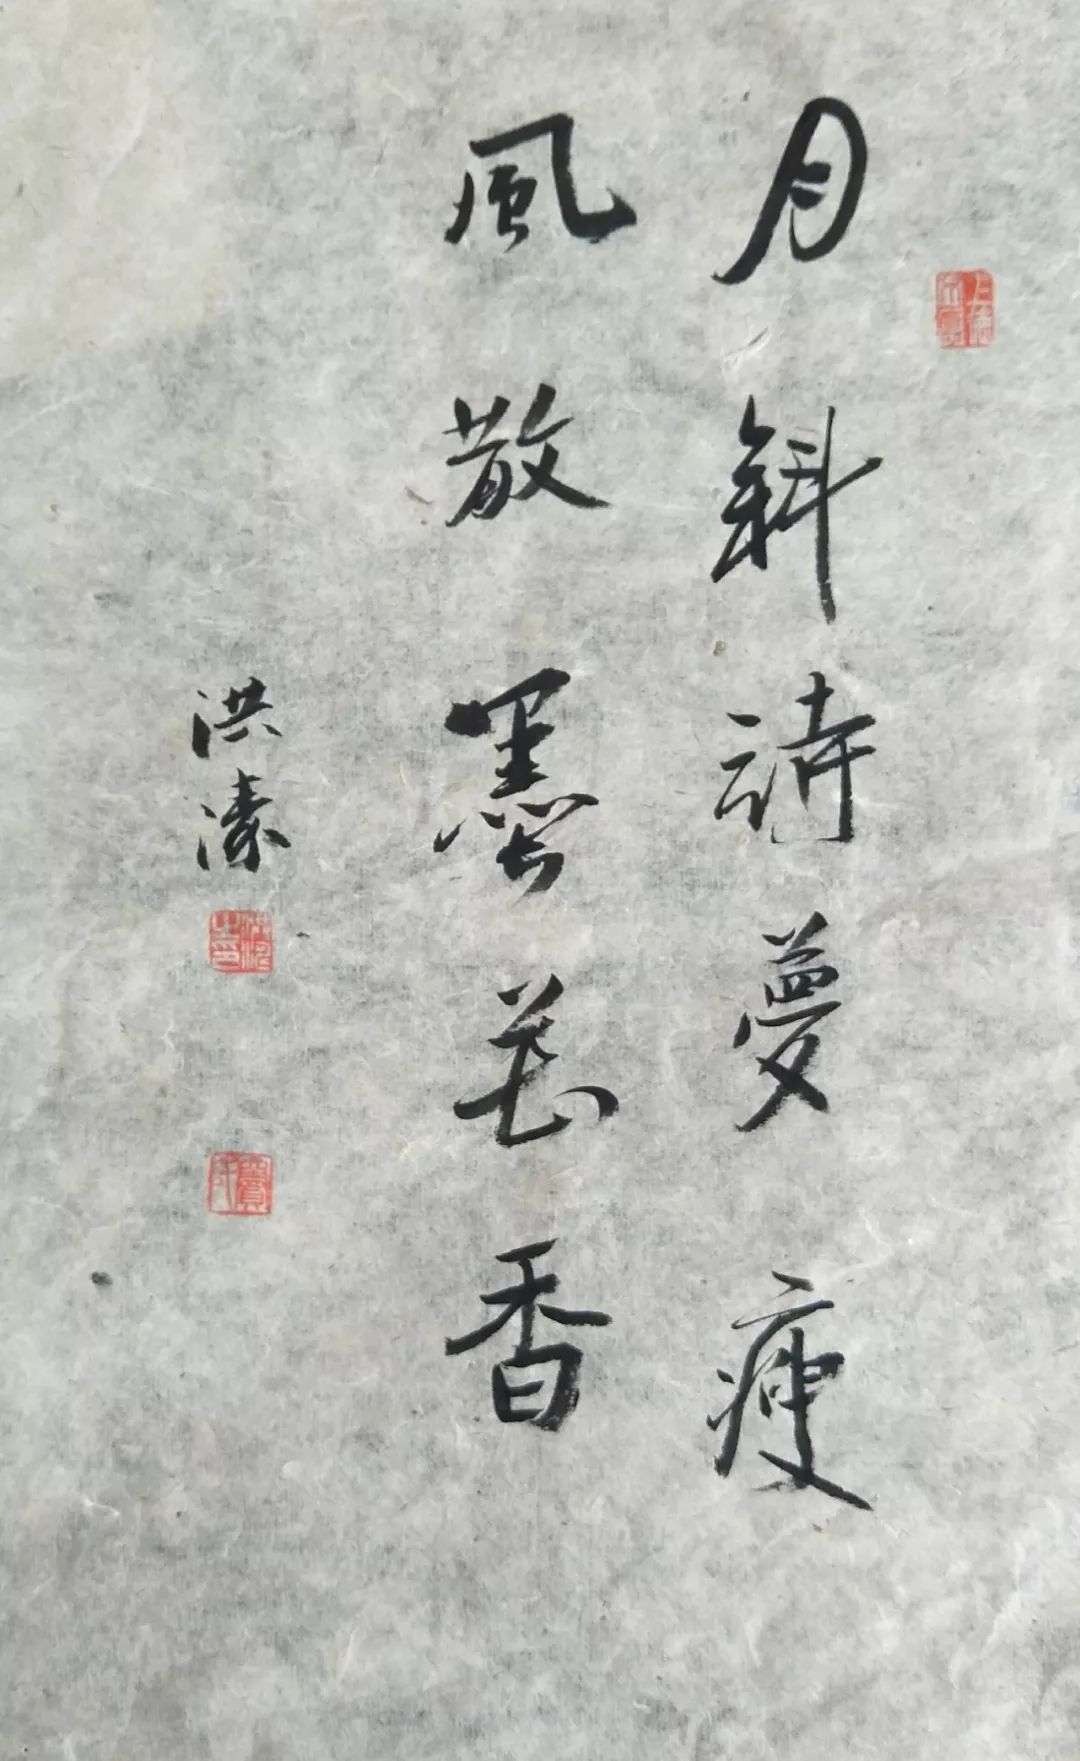 月斜詩夢瘦
風散墨花香
洪濤